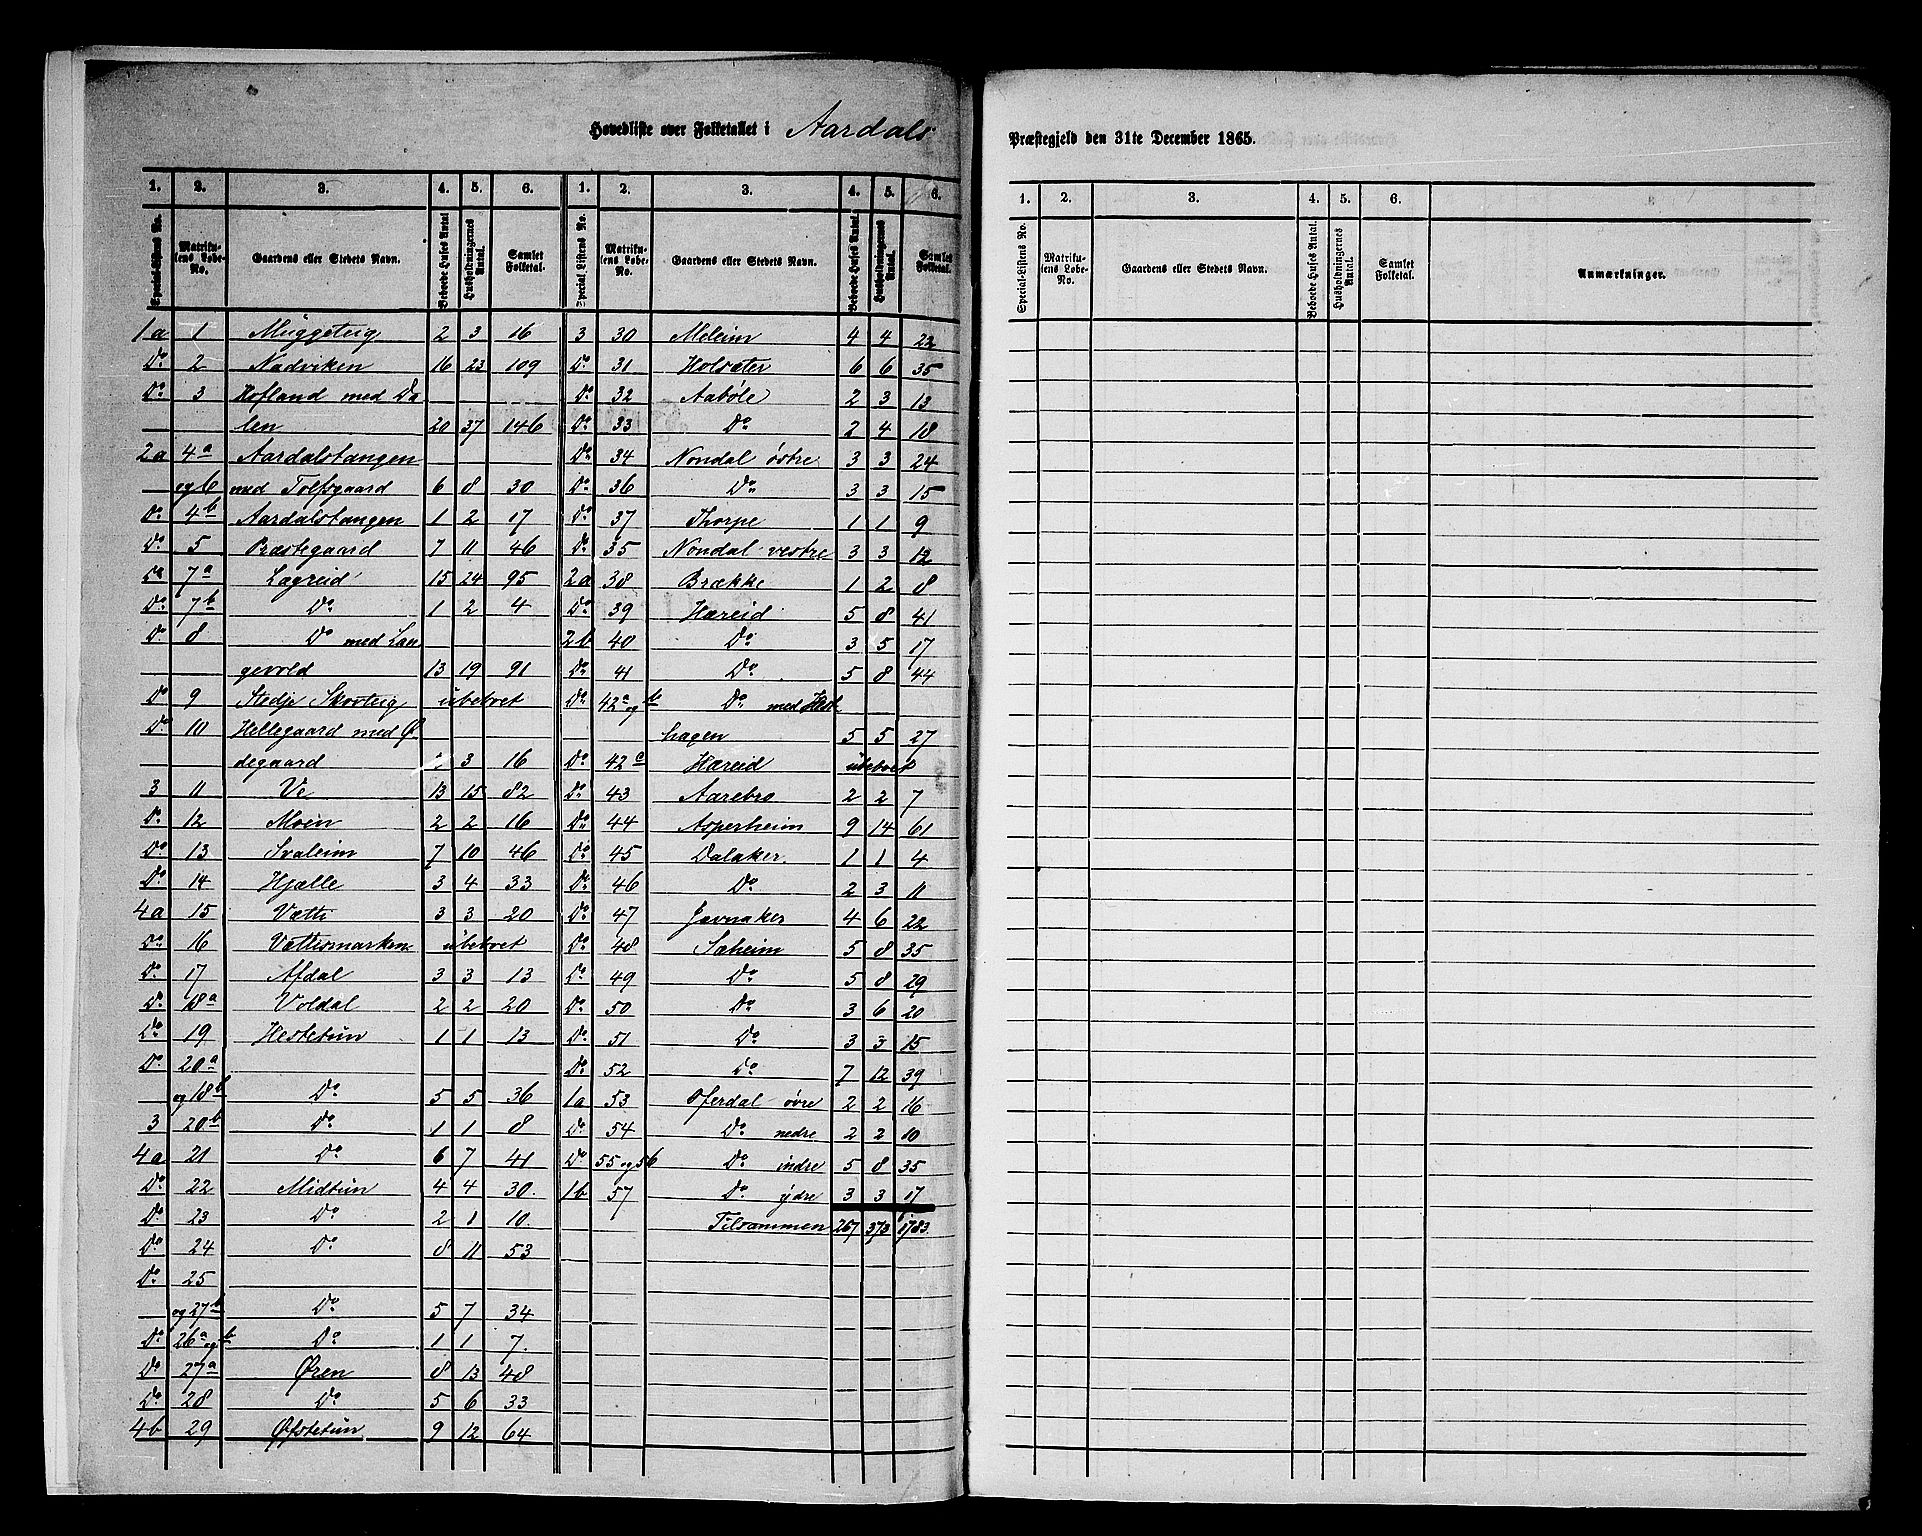 Hovedliste over Folketallet i Aardals
1. 2. 3. 4. 5. 6. 1. 2. 3. 4. 5. 6.
Special-Listens No. Matrikulens Løbe-No. Gaardens eller Stedets Navn. Beboede Huses Antal Husholdningernes Antal. Samlet Folketal. Special-Listens No. Matrikulens Løbe-No. Gaardens eller Stedets Navn. Beboede Huses Antal. Husholdningernes Antal. Samlet Folketal.
1a 1 Muggeteig 2 3 16
Do 2 Nadviken 16 23 109
Do 3 Hofland med Da
len 20 37 146
2a 4a Aardalstangen
og 6 med Tolfsgaard 6 8 30
Do 4b Aardalstangen 1 2 17
Do 5 Præstegaard 7 11 46
Do 7a Lægreid 15 24 95
Do 7b Do 1 2 4
Do 8 Do med Lan
gevold 13 19 91
Do 9 Stedje Skorteig ubeboet
Do 10 Hellegaard med Ø
degaard 3 16
3 11 Ve 13 15 82
Do 12 Moen 2 2 16
Do 13 Svaleim 7 10 46
Do 14 Hjælle 3 4 33
4a 15 Vætti 3 3 20
Do 16 Vættismarken ubeboet
Do 17 Afdal 3 3 13
Do 18a Voldal 2 2 20
Do 19 Hestetun 1 1 13
Do 20a
og 18b Do 5 5 36
3 20b Do 1 1 8
4a 21 Do 6 7 41
Do 22 Midtun 4 4 30.
Do 23 Do 2 1 10.
Do 24 Do 8 11 53
Do 25
og 27b Do 5 7 34
Do 26a og b Do 1 1 7.
Do 27a Øren 8 13 48
Do 28 Do 5 6 33
4b 29 Øfstetun 9 12 64
3 30 Meleim 4 4 22
Do 31 Holsæter 6 6 35
Do 32 Aabøle 2 3 13
Do 33 Do 2 4 18
Do 34 Nondal østre 3 3 24
Do 36 Do 3 3 15
Do 37 Thorpe 1 1 9
Do 35 Nondal vestre 3 3 12
2a 38 Brække 1 2 8
Do 39 Hæreid 5 8 41
2b 40 Do 3 5 17
Do 41 Do 5 8 44
Do 42a og b Do med Hest
hagen 5 5 27
Do 42c Hæreid ubeboet
Do 43 Aarebro 2 2 7
Do 44 Asperheim 9 14 61
Do 45 Dalaker. 1 1 4
Do 46 Do 2 3 11
Do 47 Jevnaker 4 6 22
Do 48 Sæheim 5 8 35
Do 49 Do 5 8 29
Do 50 Do 3 6 20
Do 51 Do 3 3 15
Do 52 Do 7 12 39
1a 53 Oferdal øvre 2 2 16
Do 54 Do nedre 2 2 10
Do 55 og 56 Do indre 5 8 35
1b 57 Do ydre 3 3 17
Tilsammen 267 373 1783.
Præstegjeld den 31te December 1865.
1. 2. 3. 4. 5. 6.
Special-Listens No. Matrikulens Løbe-No. Gaardens eller Stedets Navn. Beboede Huses Antal. Husholdningernes Antal. Samlet Folketal. Anmærkninger.